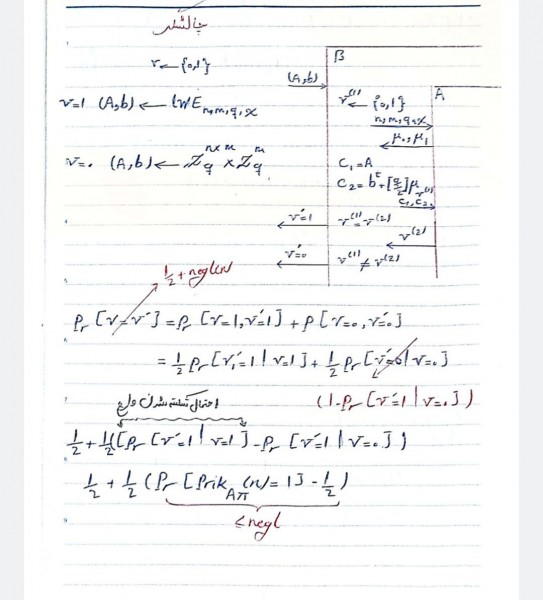 چالشگر
r ← {0,1}
B
(A,b)
r⁽¹⁾ ← {0,1}
A
r=1 (A,b) ← LWE n,m,q,χ
n,m,q,χ
μ₀, μ₁
r=0 (A,b) ← ℤ_q^{n×m} × ℤ_q^m
C₁ = A
C₂ = bᵗ + [q/2] μ_{r⁽¹⁾}
C₁, C₂
r'=1 r⁽¹⁾ = r⁽²⁾
r⁽²⁾
r'=0 r⁽¹⁾ ≠ r⁽²⁾
1/2 + negl(n)
Pr [r=r'] = Pr [r=1, r'=1] + P [r=0, r'=0]
= 1/2 Pr [r'=1 | r=1] + 1/2 Pr [r'=0 | r=0]
(1 - Pr [r'=1 | r=0])
1/2 + 1/2 ([Pr [r'=1 | r=1] - Pr [r'=1 | r=0])
1/2 + 1/2 (Pr [Prik_{Aπ}(n) = 1] - 1/2)
≤ negl